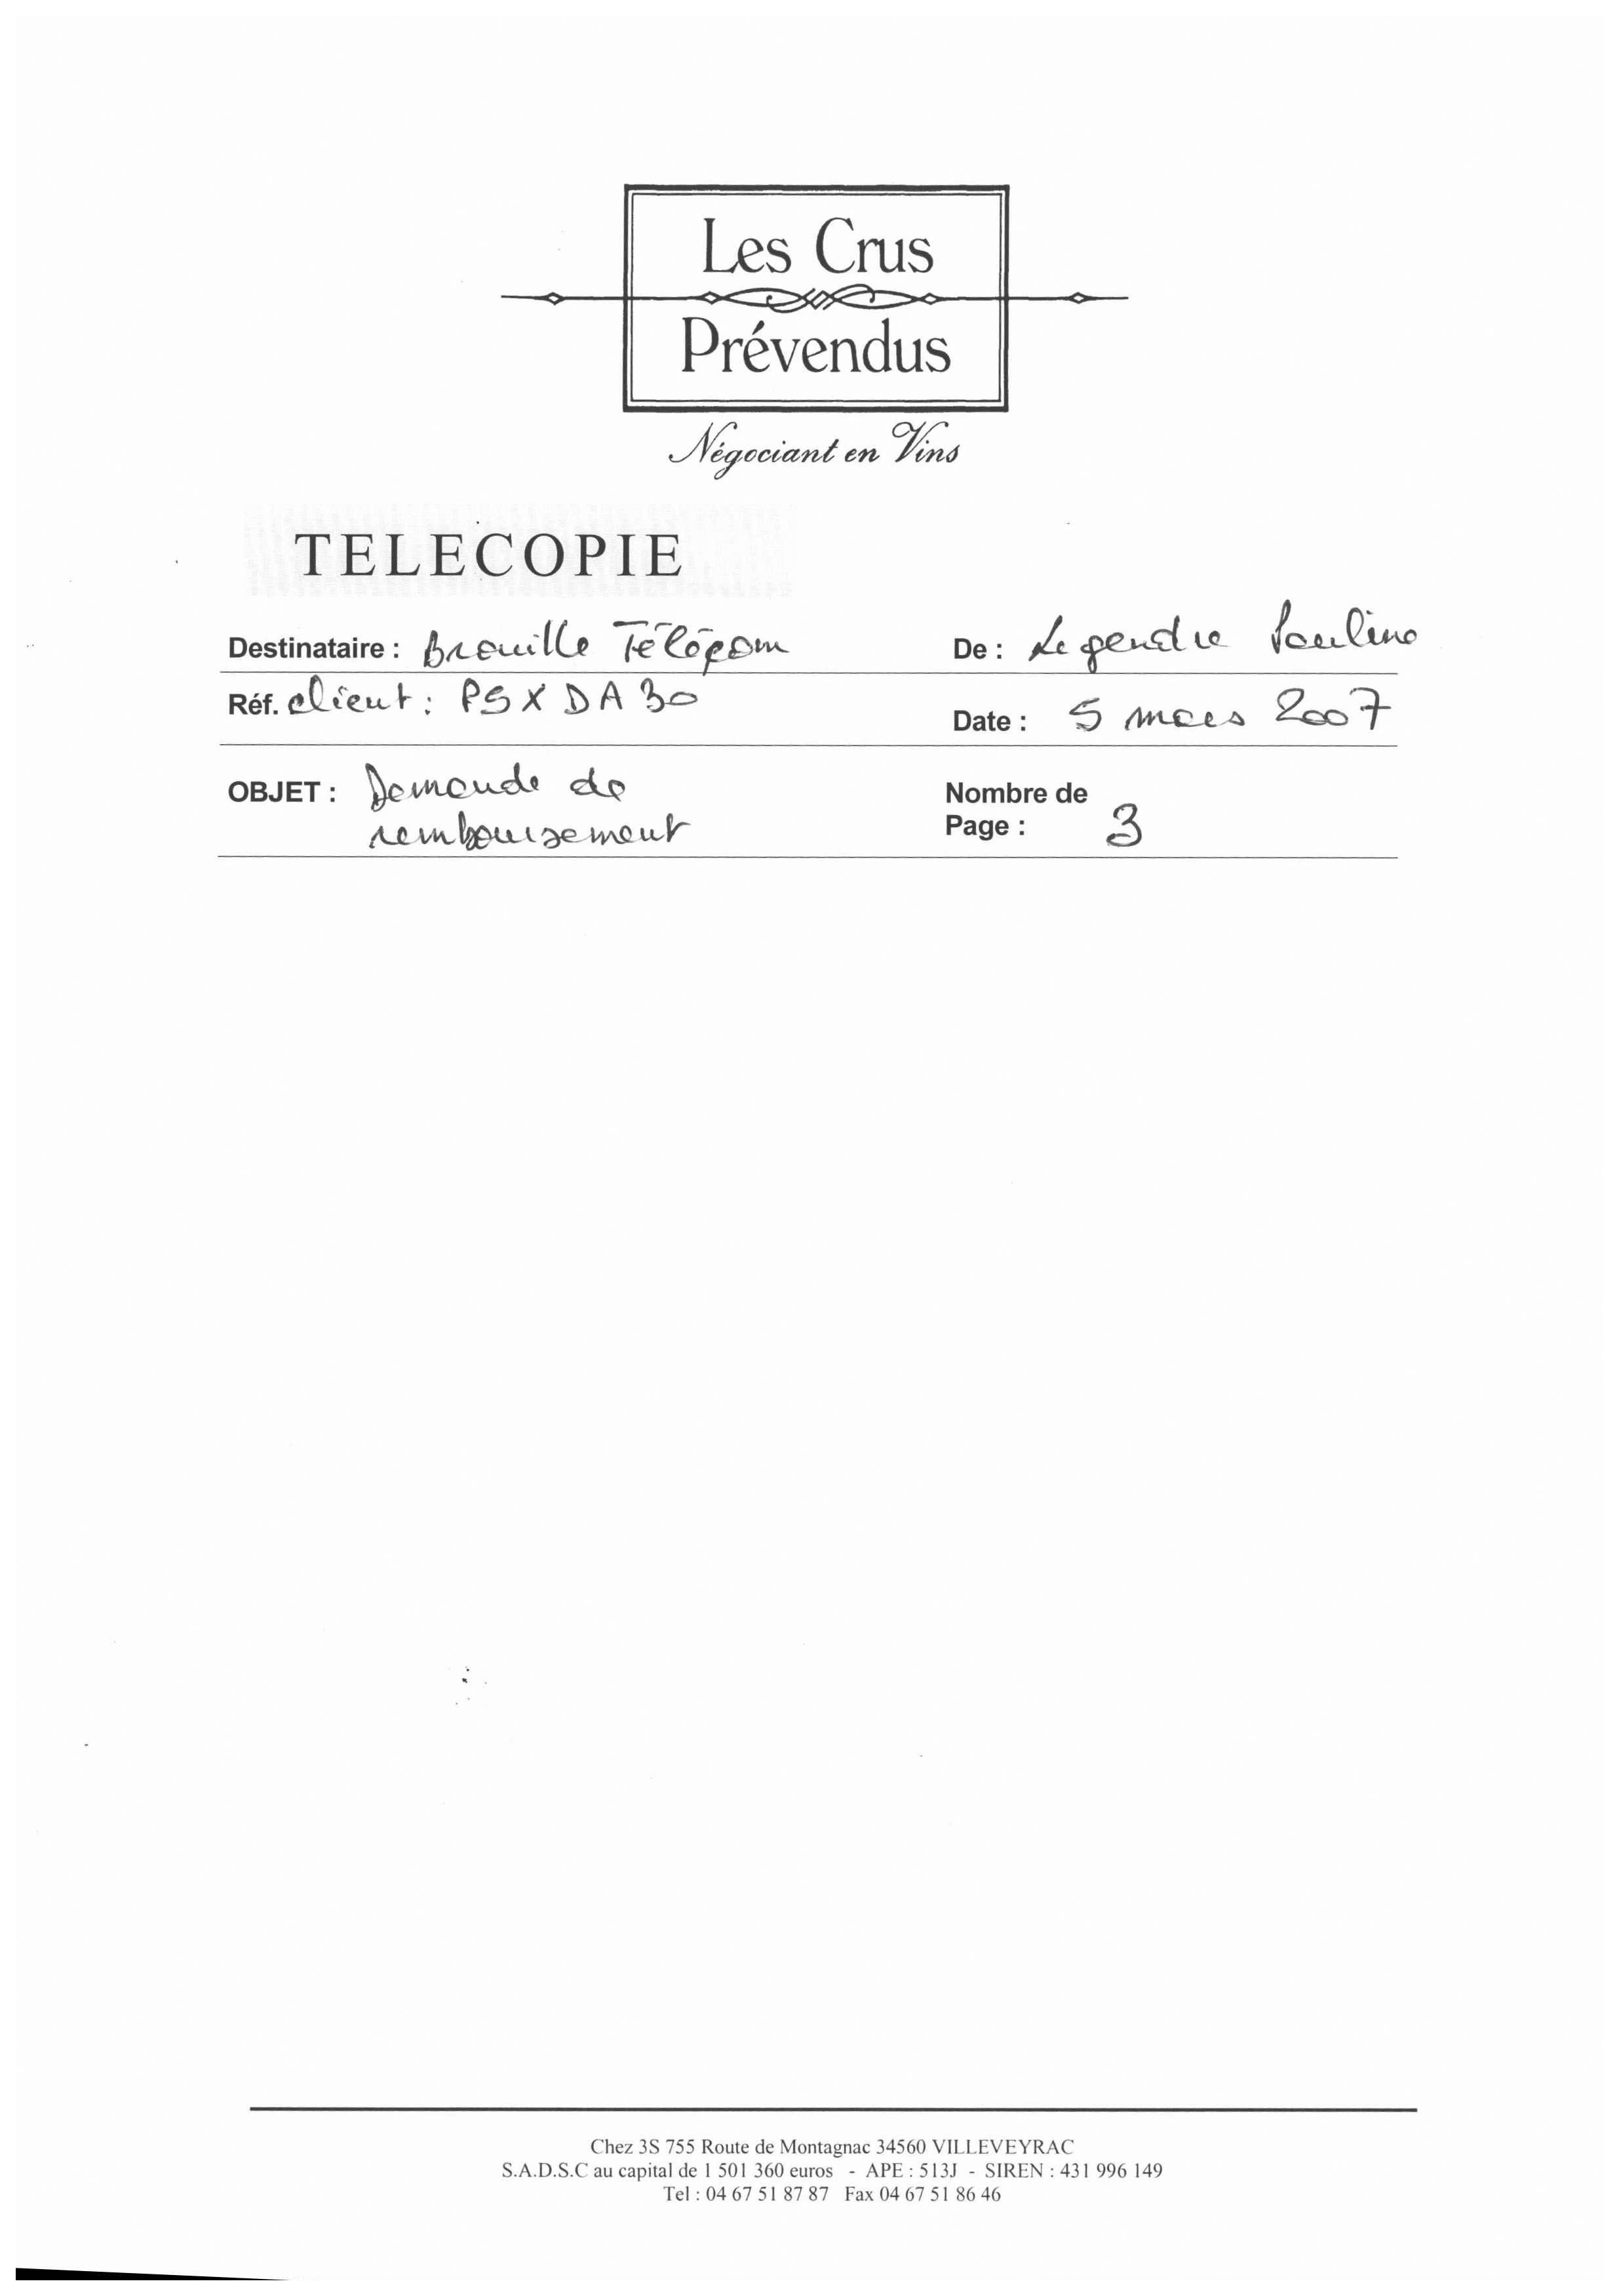 Les Crus
Prévendus
Négociant en Vins
TELECOPIE
Destinataire : Brouille Télécom De : Legendre Pauline
Réf. client : PSXDA30 Date : 5 mars 2007
OBJET : Demande de remboursement
Nombre de Page : 3
Chez 3S 755 Route de Montagnac 34560 VILLEVEYRAC
S.A.D.S.C au capital de 1 501 360 euros - APE : 513J - SIREN : 431 996 149
Tel : 04 67 51 87 87 Fax 04 67 51 86 46